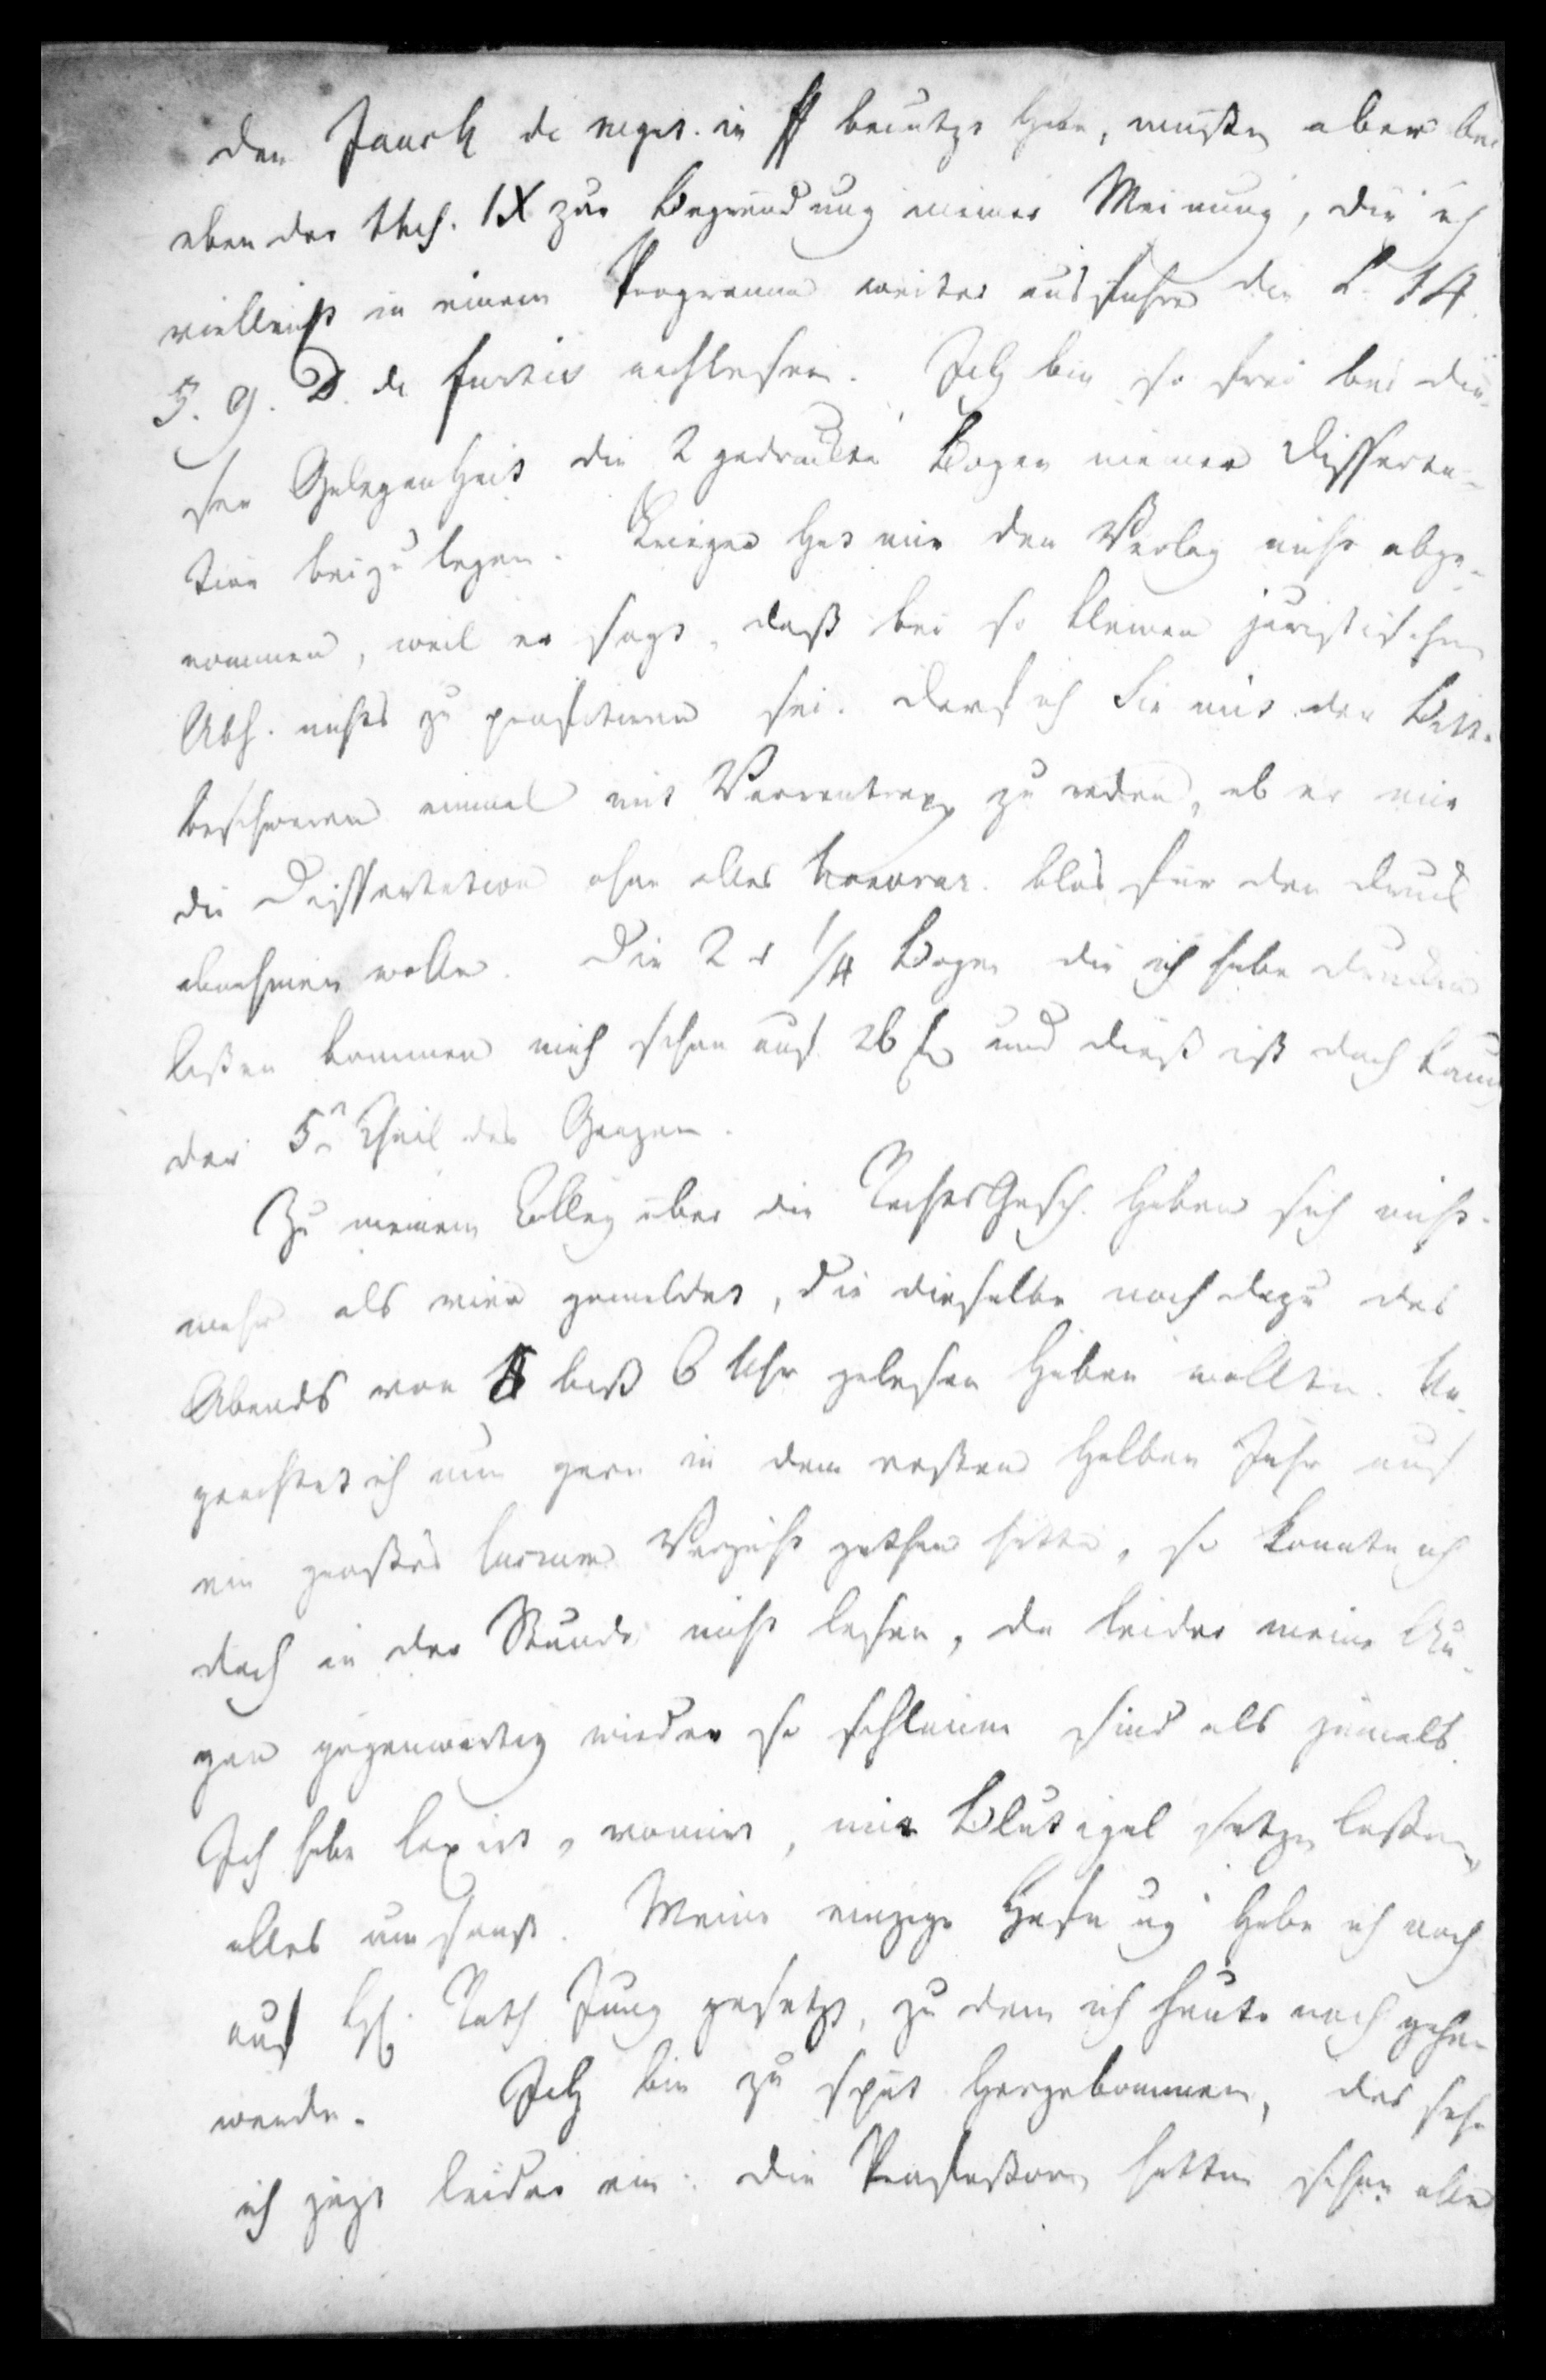 den Jauch de negat. in ff benutzt habe, mußte aber bei
eben der thes. IX zur Begründung meiner Meinung, die ich
vielleicht in einem Programm weiter ausführe die L. 14.
§. 9. D. de furtis nachlesen. Ich bin so frei bei die-
ser Gelegenheit die 2 gedruckte Bogen meiner Disserta-
tion beizulegen. Krieger hat mir den Verlag nicht abge-
nommen, weil er sagt, daß bei so kleinen juristischen
Abh. nichts zu profitiren sei. Darf ich Sie mit der Bitte
beschweren einmal mit Varrentrapp zu reden, ob er mir
die Dissertation ohne alles honorar. blos für den Druck
abnehmen wolle. Die 2 u 1/4 Bogen die ich habe drucken
laßen kommen mich schon auf 26 f und dieß ist doch kaum
der 5te Theil des Ganzen.
Zu meinem Colleg über die RechtsGesch. haben sich nicht
mehr als vier gemeldet, die dieselbe noch dazu des
Abends von 5 biß 6 Uhr gelesen haben wollten. Un-
geachtet ich nun gern in dem ersten halben Jahr auf
ein großes lucrum Verzicht gethan hätte, so konnte ich
doch in der Stunde nicht lesen, da leider meine Au-
gen gegenwärtig wieder so schlimm sind als jemals.
Ich habe laxirt, vomirt, mir Blutigel setzen laßen,
alles umsonst. Meine einzige Hofnung habe ich noch
auf H. Rath Jung gesetzt, zu dem ich heute noch gehen
werde. Ich bin zu spät hergekommen, das sehe
ich jezt leider ein: die Profeßoren hatten schon alle